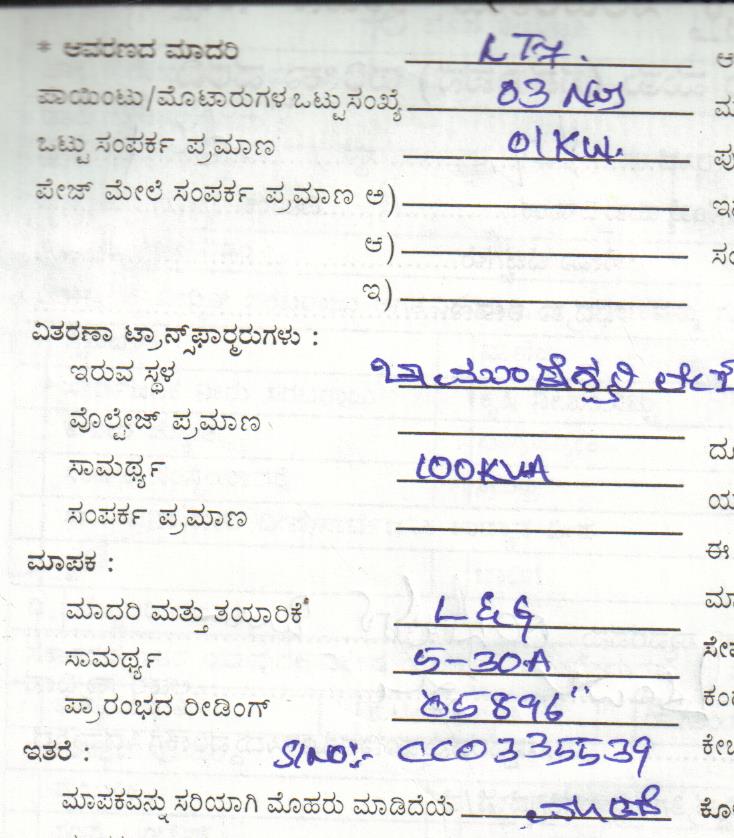 * ಆವರಣದ ಮಾದರಿ LT7.
ಪಾಯಿಂಟು/ಮೊಟಾರುಗಳ ಒಟ್ಟು ಸಂಖ್ಯೆ 03 Nos
ಒಟ್ಟು ಸಂಪರ್ಕ ಪ್ರಮಾಣ 01KW.
ಪೇಜ್ ಮೇಲೆ ಸಂಪರ್ಕ ಪ್ರಮಾಣ ಅ)
ಆ)
ಇ)
ವಿತರಣಾ ಟ್ರಾನ್ಸ್‌ಫಾರ್‍ಮರುಗಳು :
ಇರುವ ಸ್ಥಳ
ವೊಲ್ಟೇಜ್ ಪ್ರಮಾಣ
ಸಾಮರ್ಥ್ಯ 100KVA
ಸಂಪರ್ಕ ಪ್ರಮಾಣ
ಈ
ಮಾಪಕ :
ಮಾದರಿ ಮತ್ತು ತಯಾರಿಕೆ L&G
ಸಾಮರ್ಥ್ಯ 5-30A
ಪ್ರಾರಂಭದ ರೀಡಿಂಗ್ 05896"
ಇತರೆ : S/NO:- CC0335539
ಮಾಪಕವನ್ನು ಸರಿಯಾಗಿ ಮೊಹರು ಮಾಡಿದೆಯೆ ಮಾಡಿದೆ